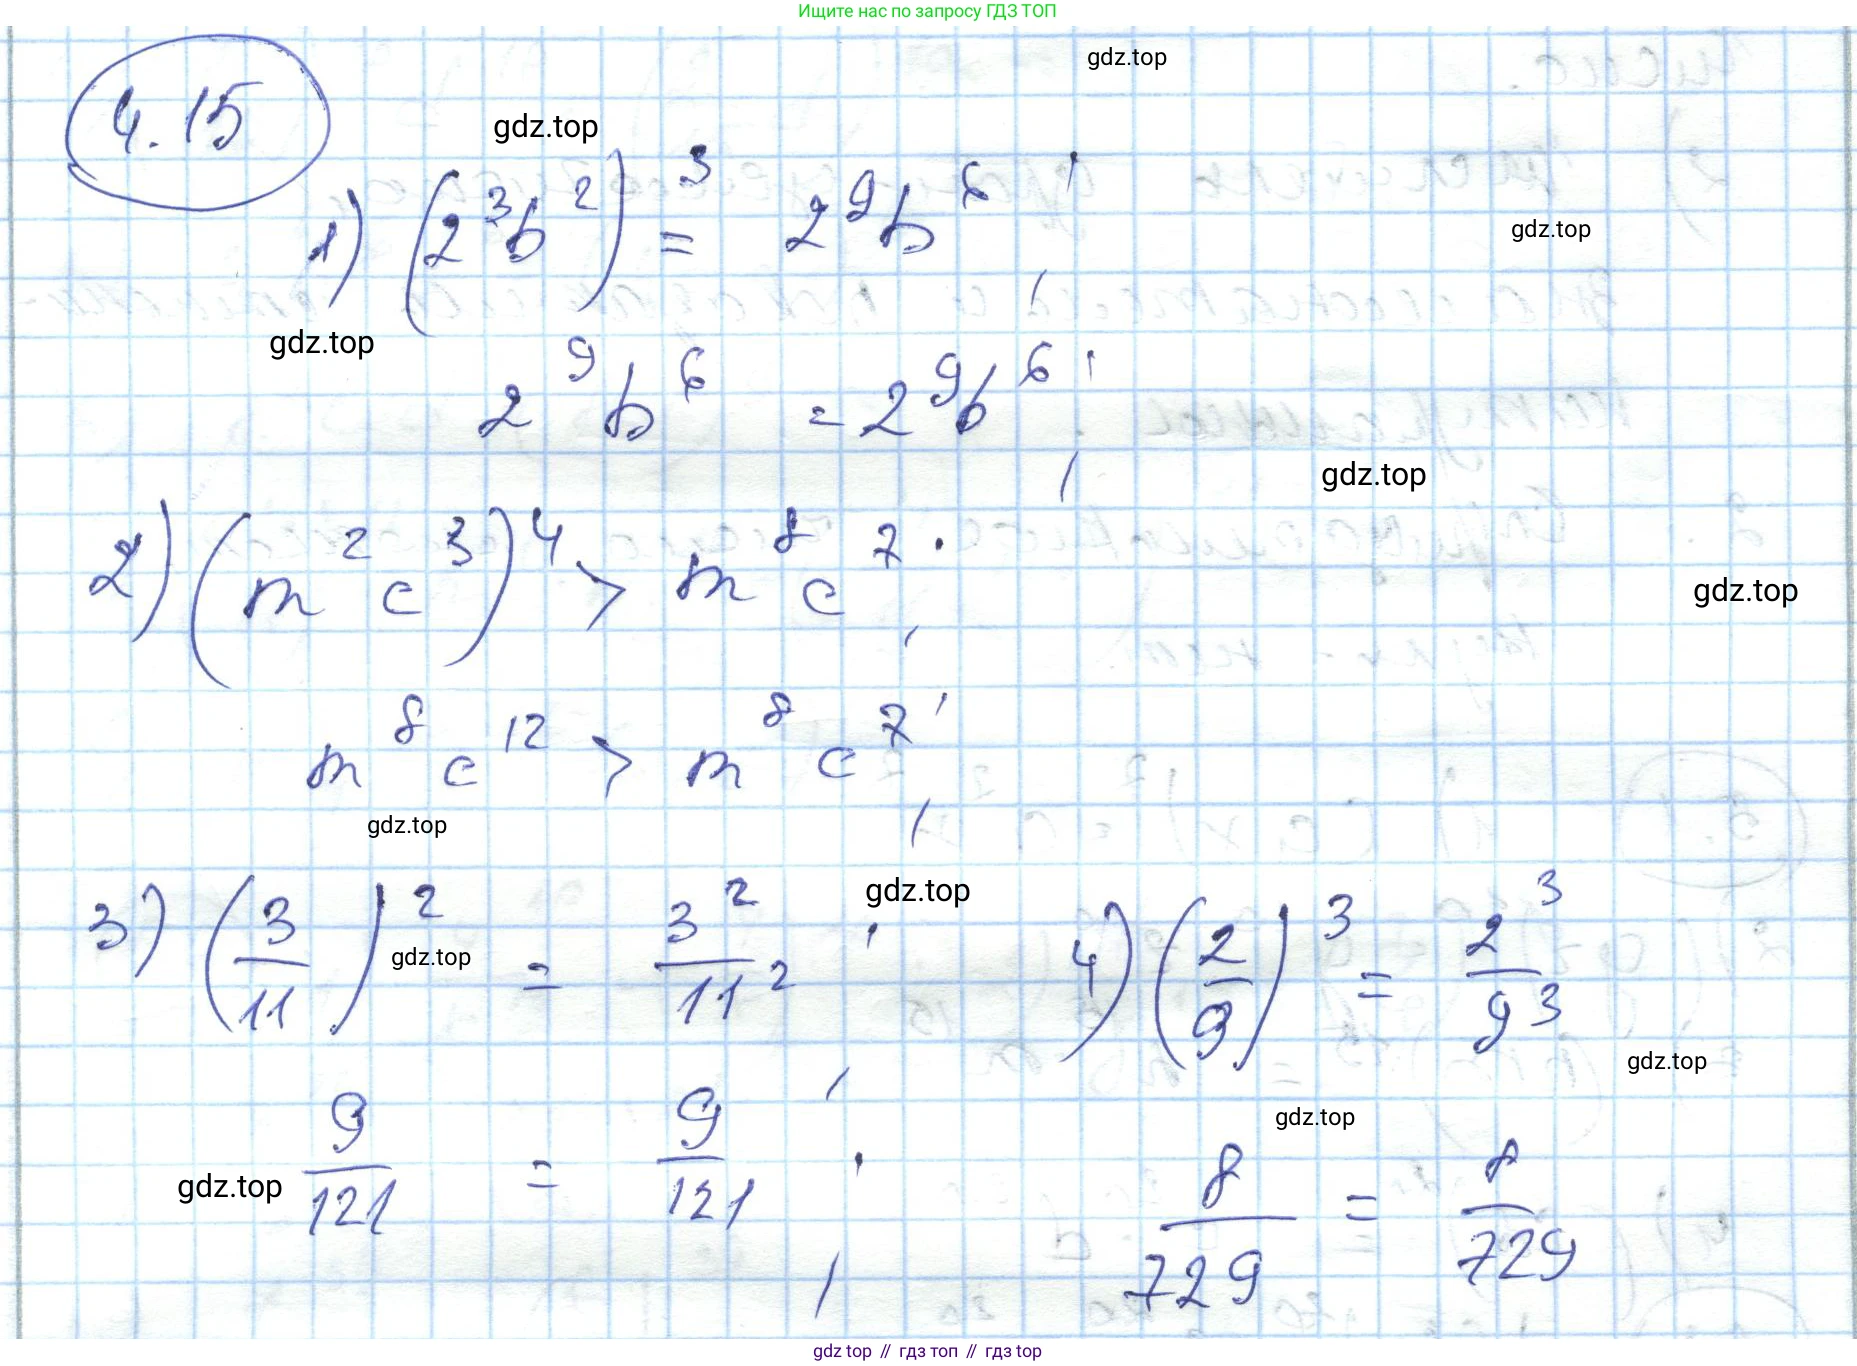 Ищите нас по запросу ГДЗ ТОП
gdz.top
4.15
gdz.top
1) (2³b²)³ = 2⁹b⁶;
gdz.top
gdz.top
2⁹b⁶ = 2⁹b⁶;
gdz.top
2) (m²c³)⁴ > m⁸c⁷;
gdz.top
m⁸c¹² > m⁸c⁷;
gdz.top
gdz.top
3) (3/11)² = 3²/11²; 4) (2/9)³ = 2³/9³
gdz.top
gdz.top
gdz.top
9/121 = 9/121; 8/729 = 8/729
gdz.top
gdz top // гдз топ // gdz top